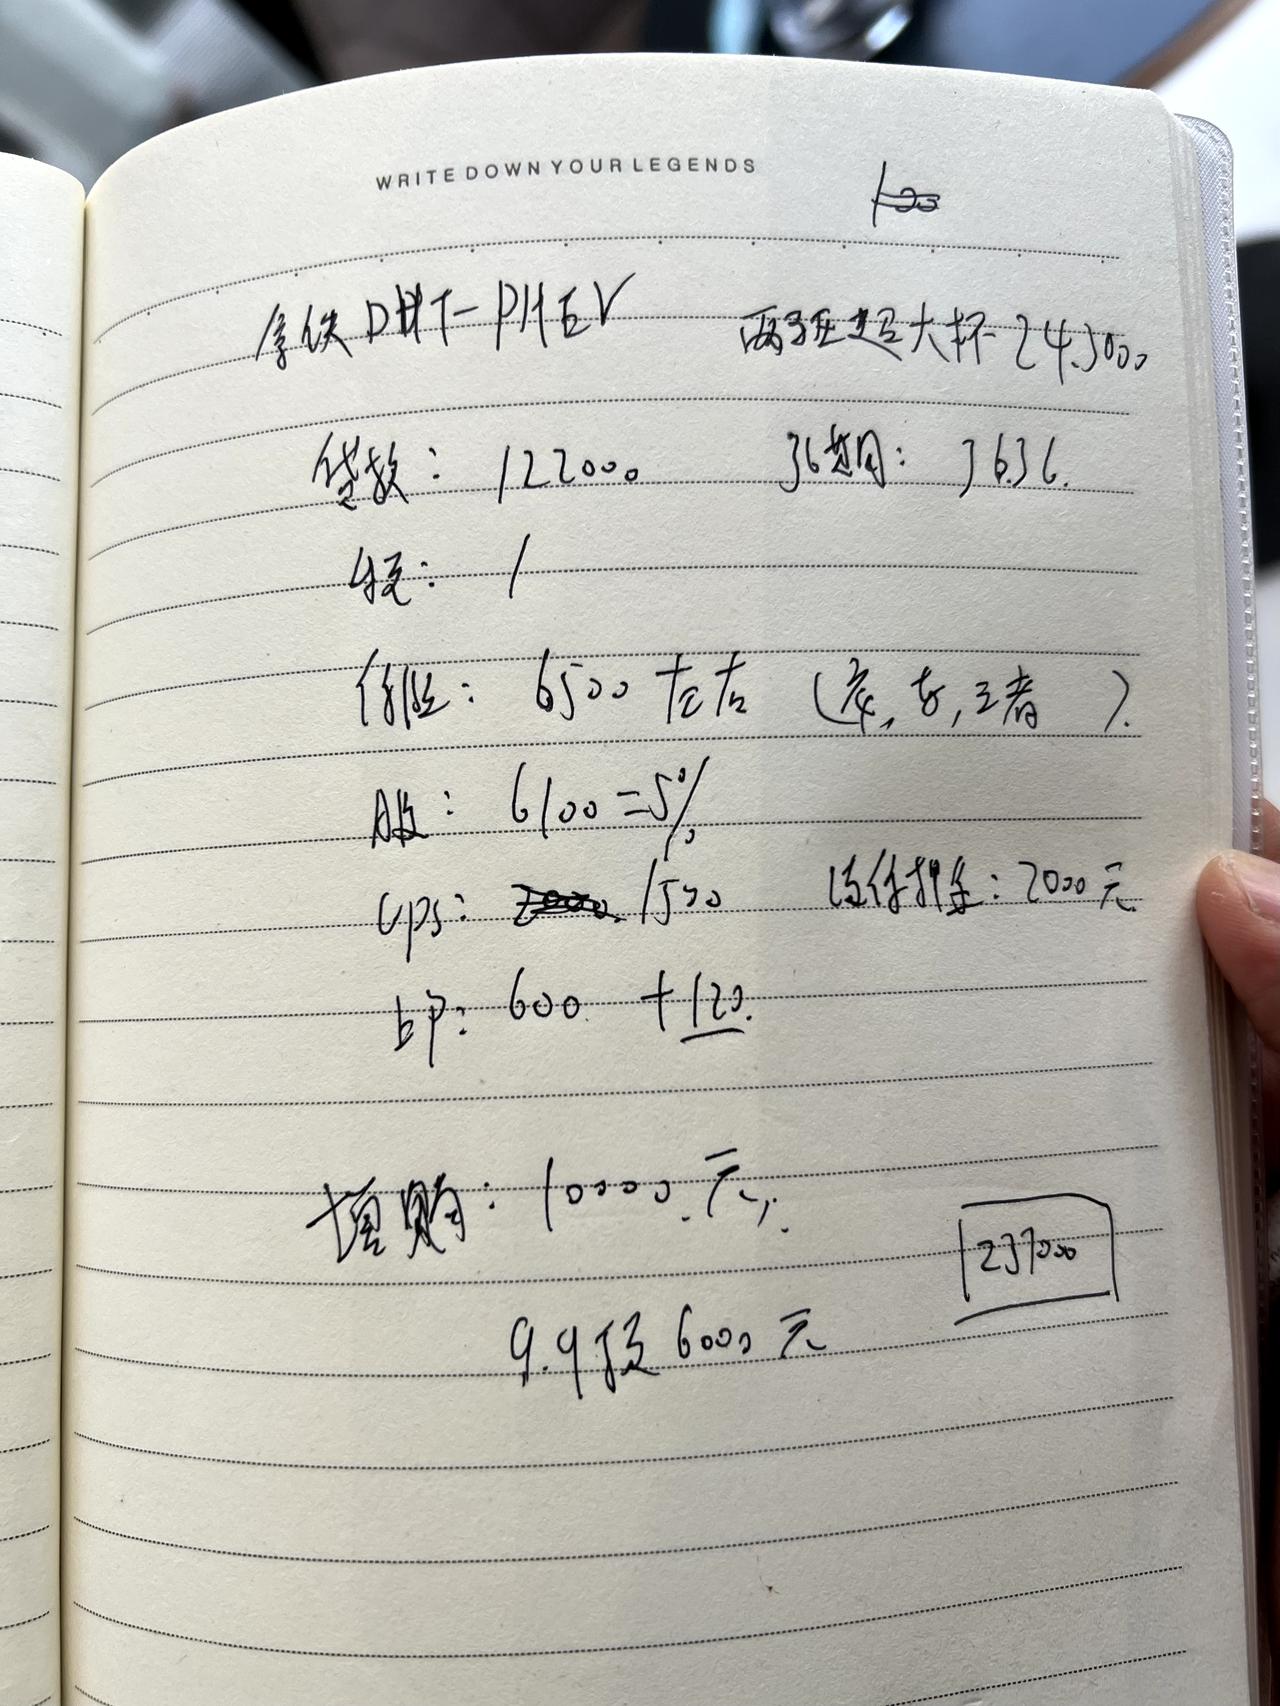 WRITE DOWN YOUR LEGENDS
拿铁 DHT-PHEV 两驱超大杯 243000
贷款: 122000 36期: 3636.
税: /
保险: 6500 左右 (车, 女, 三者 ).
服: 6100=5%
GPS: 1500 续保押金: 2000元
上户: 600 +120.
增购: 10000元.
237000
9.9抵6000元